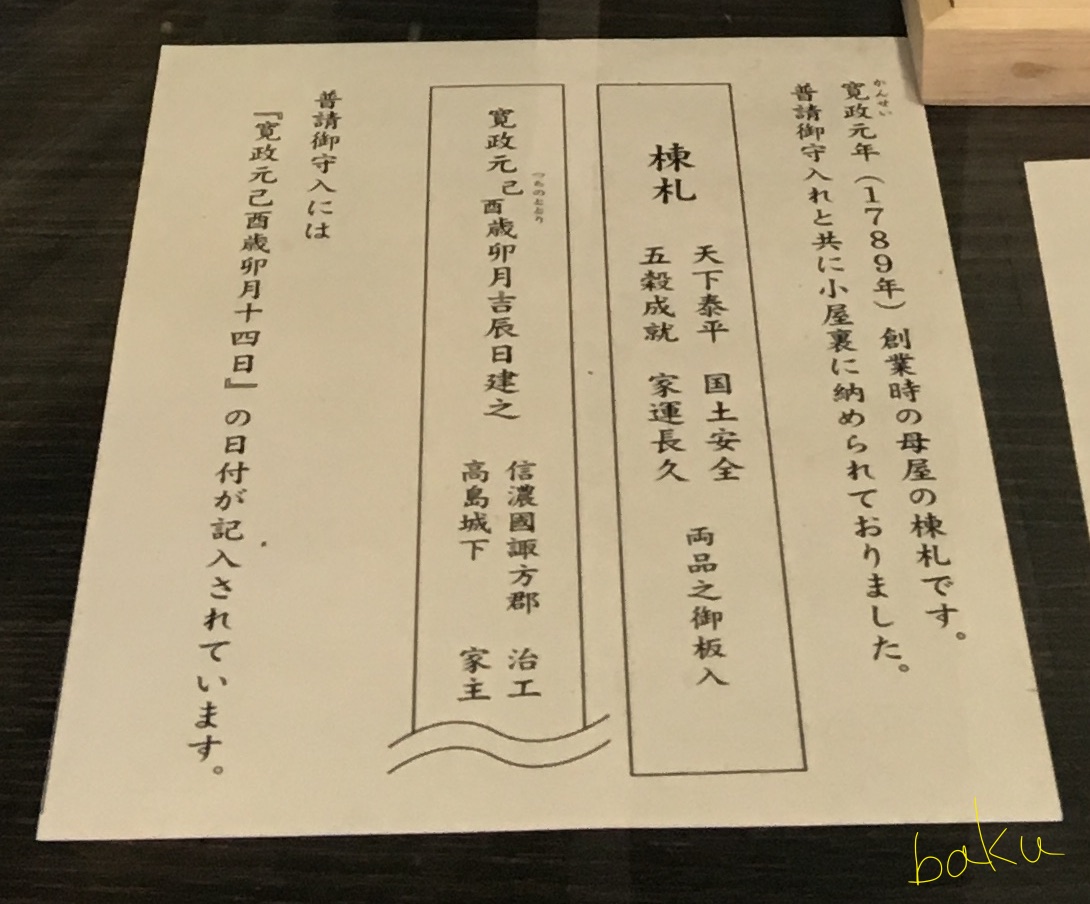 寛政元年（1789年）創業時の母屋の棟札です。
かんせい
普請御守入れと共に小屋裏に納められておりました。
棟札
天下泰平　国土安全
五穀成就　家運長久
両品之御板入
寛政元己酉歳卯月吉辰日建之
つちのととり
信濃國諏方郡　治工
高島城下　家主
普請御守入には
『寛政元己酉歳卯月十四日』の日付が記入されています。
baku